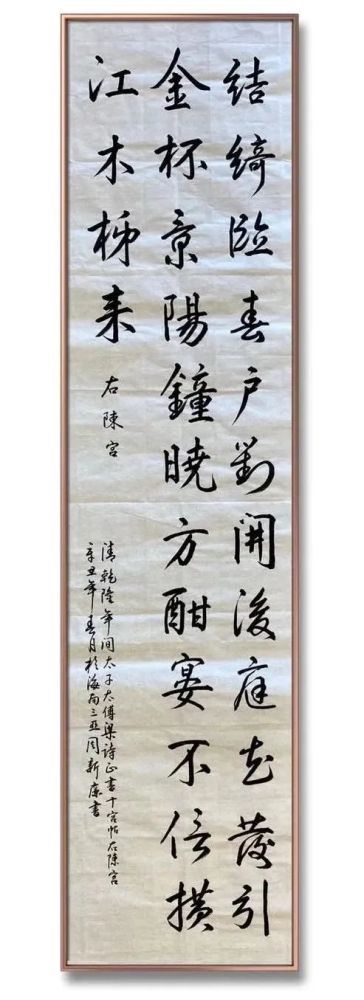 結綺臨春戶對開後庭花發引
金杯景陽鐘曉方酣宴不信橫
江木柹來
右陳宮
清乾隆年间太子太傅梁詩正書十宮帖右陳宮
辛丑年春月於海南三亞周新廉書